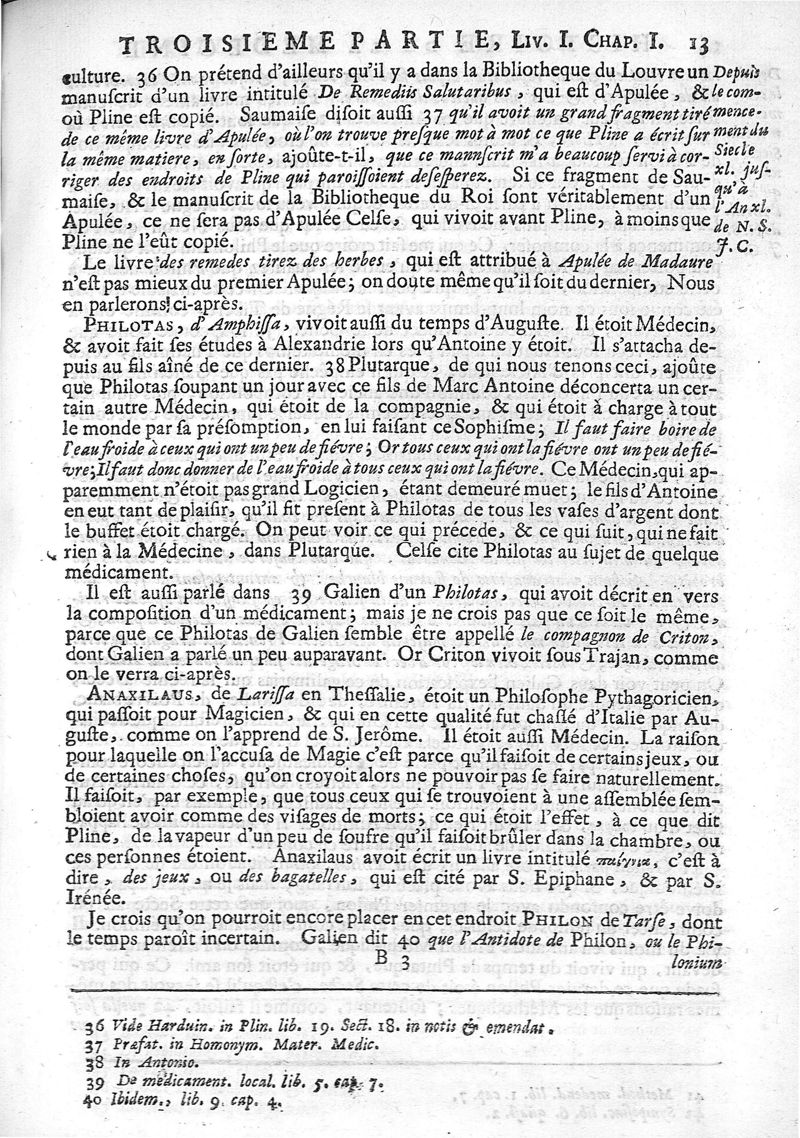 TROISIEME PARTIE, Liv. I. Chap. I. 13
culture. 36 On prétend d'ailleurs qu'il y a dans la Bibliotheque du Louvre un
manuſcrit d'un livre intitulé De Remediis Salutaribus, qui eſt d'Apulée, &
où Pline eſt copié. Saumaiſe diſoit auſſi 37 qu'il avoit un grand fragment tiré
de ce même livre d'Apulée, où l'on trouve preſque mot à mot ce que Pline a écrit ſur
la même matiere, en ſorte, ajoûte-t-il, que ce mannſcrit m'a beaucoup ſervi à cor-
riger des endroits de Pline qui paroiſſoient deſeſperez. Si ce fragment de Sau-
maiſe, & le manuſcrit de la Bibliotheque du Roi ſont véritablement d'un
Apulée, ce ne ſera pas d'Apulée Celſe, qui vivoit avant Pline, à moins que
Pline ne l'eût copié.
Depuis
le com-
mence-
ment du
Siecle
xl, juſ-
qu'à
l'An xl.
de N. S.
J. C.
Le livre des remedes tirez des herbes, qui eſt attribué à Apulée de Madaure
n'eſt pas mieux du premier Apulée; on doute même qu'il ſoit du dernier, Nous
en parlerons ci-après.
PHILOTAS, d'Amphiſſa, vivoit auſſi du temps d'Auguſte. Il étoit Médecin,
& avoit fait ſes études à Alexandrie lors qu'Antoine y étoit. Il s'attacha de-
puis au fils aîné de ce dernier. 38 Plutarque, de qui nous tenons ceci, ajoûte
que Philotas ſoupant un jour avec ce fils de Marc Antoine déconcerta un cer-
tain autre Médecin, qui étoit de la compagnie, & qui étoit à charge à tout
le monde par ſa préſomption, en lui faiſant ce Sophiſme; Il faut faire boire de
l'eau froide à ceux qui ont un peu de fiévre; Or tous ceux qui ont la fiévre ont un peu de fié-
vre; Il faut donc donner de l'eau froide à tous ceux qui ont la fiévre. Ce Médecin, qui ap-
paremment n'étoit pas grand Logicien, étant demeuré muet; le fils d'Antoine
en eut tant de plaiſir, qu'il fit preſent à Philotas de tous les vaſes d'argent dont
le buffet étoit chargé. On peut voir ce qui précede, & ce qui ſuit, qui ne fait
rien à la Médecine, dans Plutarque. Celſe cite Philotas au ſujet de quelque
médicament.
Il eſt auſſi parlé dans 39 Galien d'un Philotas, qui avoit décrit en vers
la compoſition d'un médicament; mais je ne crois pas que ce ſoit le même,
parce que ce Philotas de Galien ſemble être appellé le compagnon de Criton,
dont Galien a parlé un peu auparavant. Or Criton vivoit ſous Trajan, comme
on le verra ci-après.
ANAXILAUS, de Lariſſa en Theſſalie, étoit un Philoſophe Pythagoricien,
qui paſſoit pour Magicien, & qui en cette qualité fut chaſſé d'Italie par Au-
guſte, comme on l'apprend de S. Jerôme. Il étoit auſſi Médecin. La raiſon
pour laquelle on l'accuſa de Magie c'eſt parce qu'il faiſoit de certains jeux, ou
de certaines choſes, qu'on croyoit alors ne pouvoir pas ſe faire naturellement.
Il faiſoit, par exemple, que tous ceux qui ſe trouvoient à une aſſemblée ſem-
bloient avoir comme des viſages de morts; ce qui étoit l'effet, à ce que dit
Pline, de la vapeur d'un peu de ſoufre qu'il faiſoit brûler dans la chambre, ou
ces perſonnes étoient. Anaxilaus avoit écrit un livre intitulé παίγνια, c'eſt à
dire, des jeux, ou des bagatelles, qui eſt cité par S. Epiphane, & par S.
Irénée.
Je crois qu'on pourroit encore placer en cet endroit PHILON de Tarſe, dont
le temps paroît incertain. Galien dit 40 que l'Antidote de Philon, ou le Phi-
B 3 lonium
36 Vide Harduin. in Plin. lib. 19. Sect. 18. in notis & emendat.
37 Præfat. in Homonym. Mater. Medic.
38 In Antonio.
39 De medicament. local. lib. 5. cap. 7.
40 Ibidem., lib. 9. cap. 4.